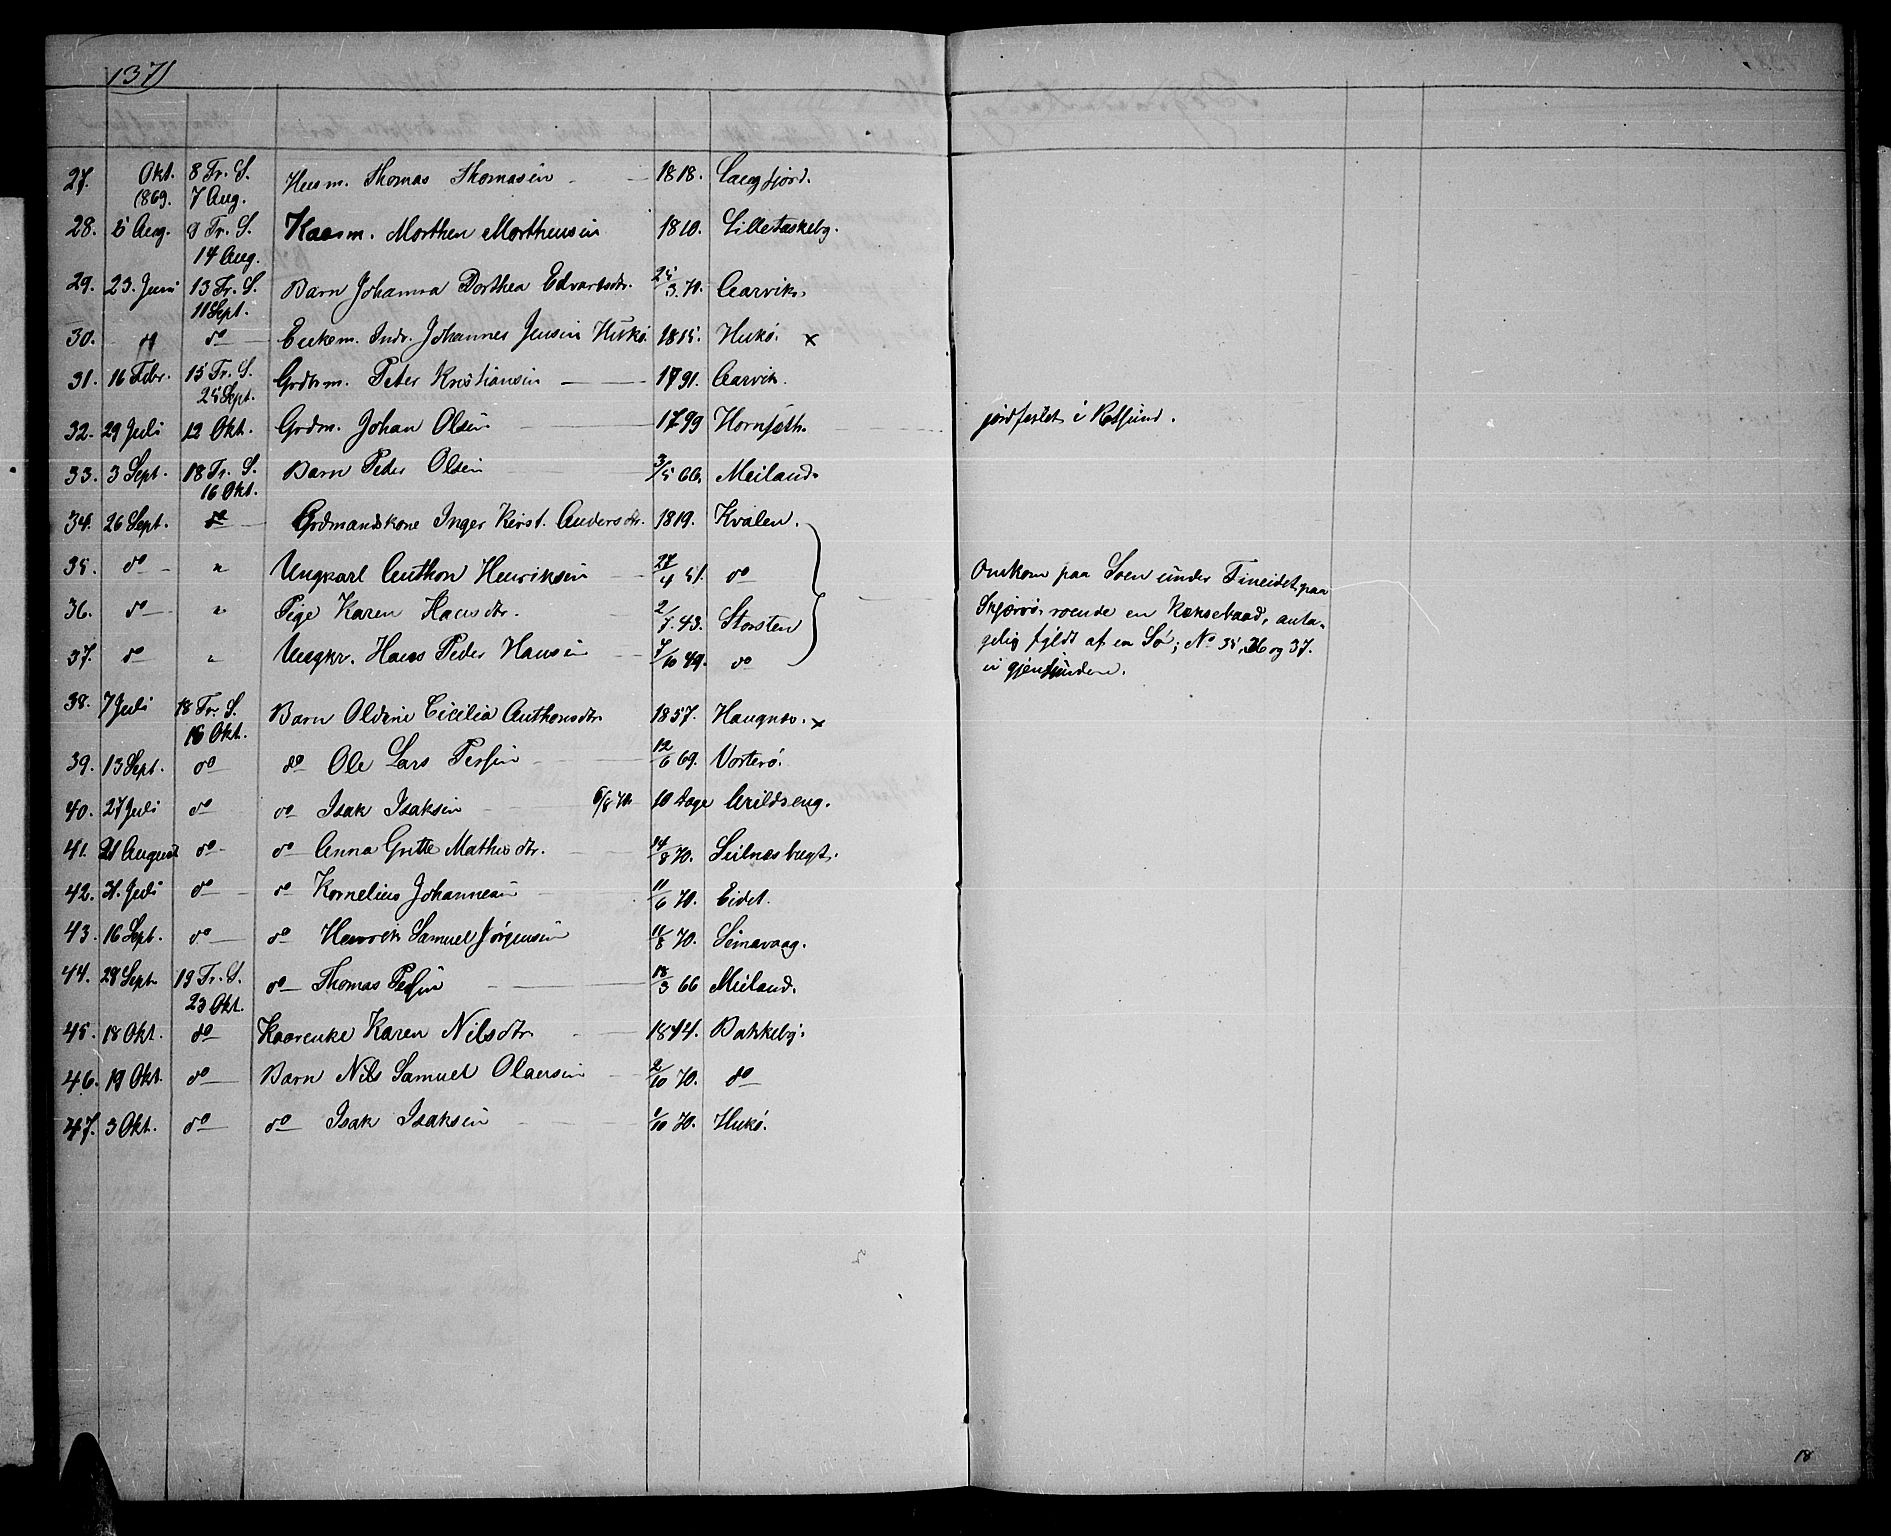 137)
27. Okt. 1869. 8 Tr. S. 7 Aug. Husm. Thomas Thomasen 1818. Langfjord.
28. 5 Aug. 9 Tr. S. 14 Aug. Kaarm. Morthen Morthensen 1810. Lilletaskeby.
29. 23. Juni 13 Tr. S. 11 Sept. Barn Johanna Dorthea Edvartsdtr. 25/3 70. Aarvik.
30. do do Enkem. Indr. Johannes Jensen Hukö. 1815. Hukö. x
31. 16 Febr. 15 Tr. S. 25 Sept. Grdm. Peter Kristiansen 1791. Aarvik.
32. 29 Juli 12 Okt. Grdm. Johan Olsen 1799 Hornsleth. jordfæstet i Rotsund.
33. 3 Sept. 18 Tr. S. 16 Okt. Barn Peder Olsen 3/5 66. Meiland.
34. 26 Sept. do Grdmandskone Inger Kirst. Andersdtr. 1819. Kvalen.
35. do " Ungkarl Anthon Henriksen 27/4 51. do Omkom paa Söen under Fineidet, paa
36. do " Pige Karen Hansdtr. 2/7 43. Storsten Skjervö, roende en Kæksebaad, anta-
37. do " Ungkr. Hans Peder Hansen 7/10 49. do gelig fyldt af en Sö; No 35, 36 og 37.
ei gjenfunden.
38. 7 Juli 18 Tr. S. 16 Okt. Barn Oldine Cicilia Anthonsdtr. 1857. Haugnæs. x
39. 13 Sept. do do Ole Lars Persen 12/6 69. Vorterö.
40. 27 Juli do do Isak Isaksen 6/8 70 10 Dage Arildseng.
41. 21 August do do Anna Gritte Mathisdtr. 14/8 70. Seilnæsbugt.
42. 31. Juli do do Kornelius Johannesen 11/6 70. Eidet.
43. 16 Sept. do do Henrik Samuel Jörgensen 11/8 70. Simavaag.
44. 28 Sept. 19 Tr. S. 23 Okt. do Thomas Persen 18/3 66 Meiland.
45. 18 Okt. do Kaarenke Karen Nilsdtr 1844. Bakkeby.
46. 19 Okt. do Barn Nils Samuel Olaersen 2/10 70. do
47. 3 Okt. do do Isak Isaksen 1/10 70. Hukö.
18